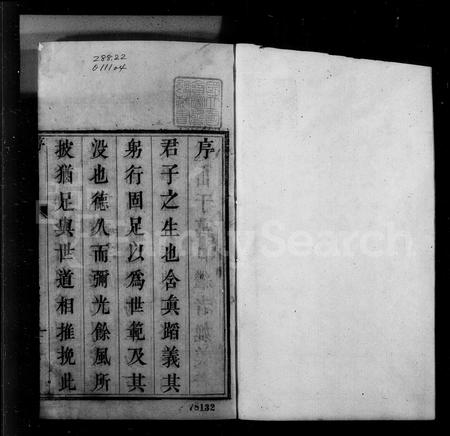 288.22
序
君子之生也含眞蹈義其
躬行固足以為世範及其
没也德久而彌光餘風所
披猶足與世道相推挽此
序
FamilySearch
78132